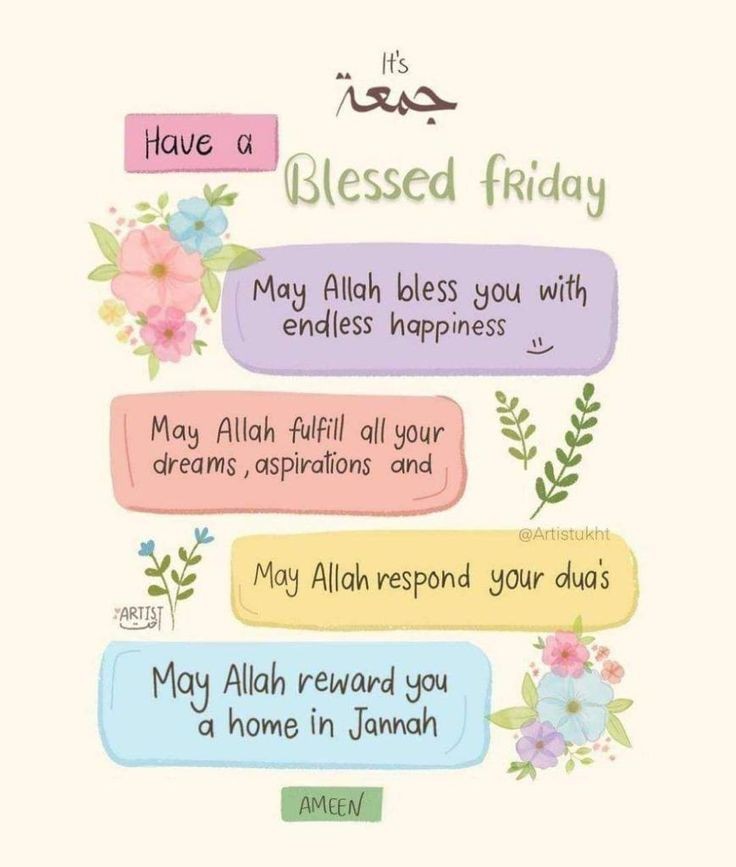 It's
جمعة
Have a
Blessed fRiday
May Allah bless you with
endless happiness
May Allah fulfill all your
dreams, aspirations and
@Artistukht
May Allah respond your dua's
ARTIST
May Allah reward you
a home in Jannah
AMEEN